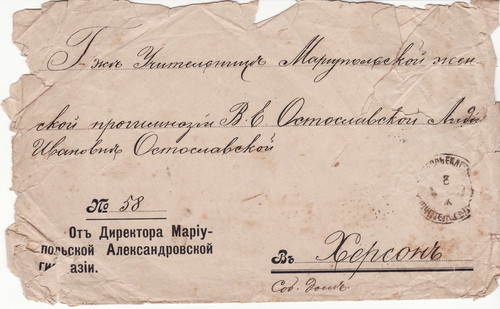 Г-жѣ Учительницѣ Маріупольской жен-
ской прогимназіи В. Е. Остославской Лидіи
Ивановнѣ Остославской
№ 58
Отъ Директора Маріу-
польской Александровской
ги азіи.
Въ Херсонъ
Соб. домъ